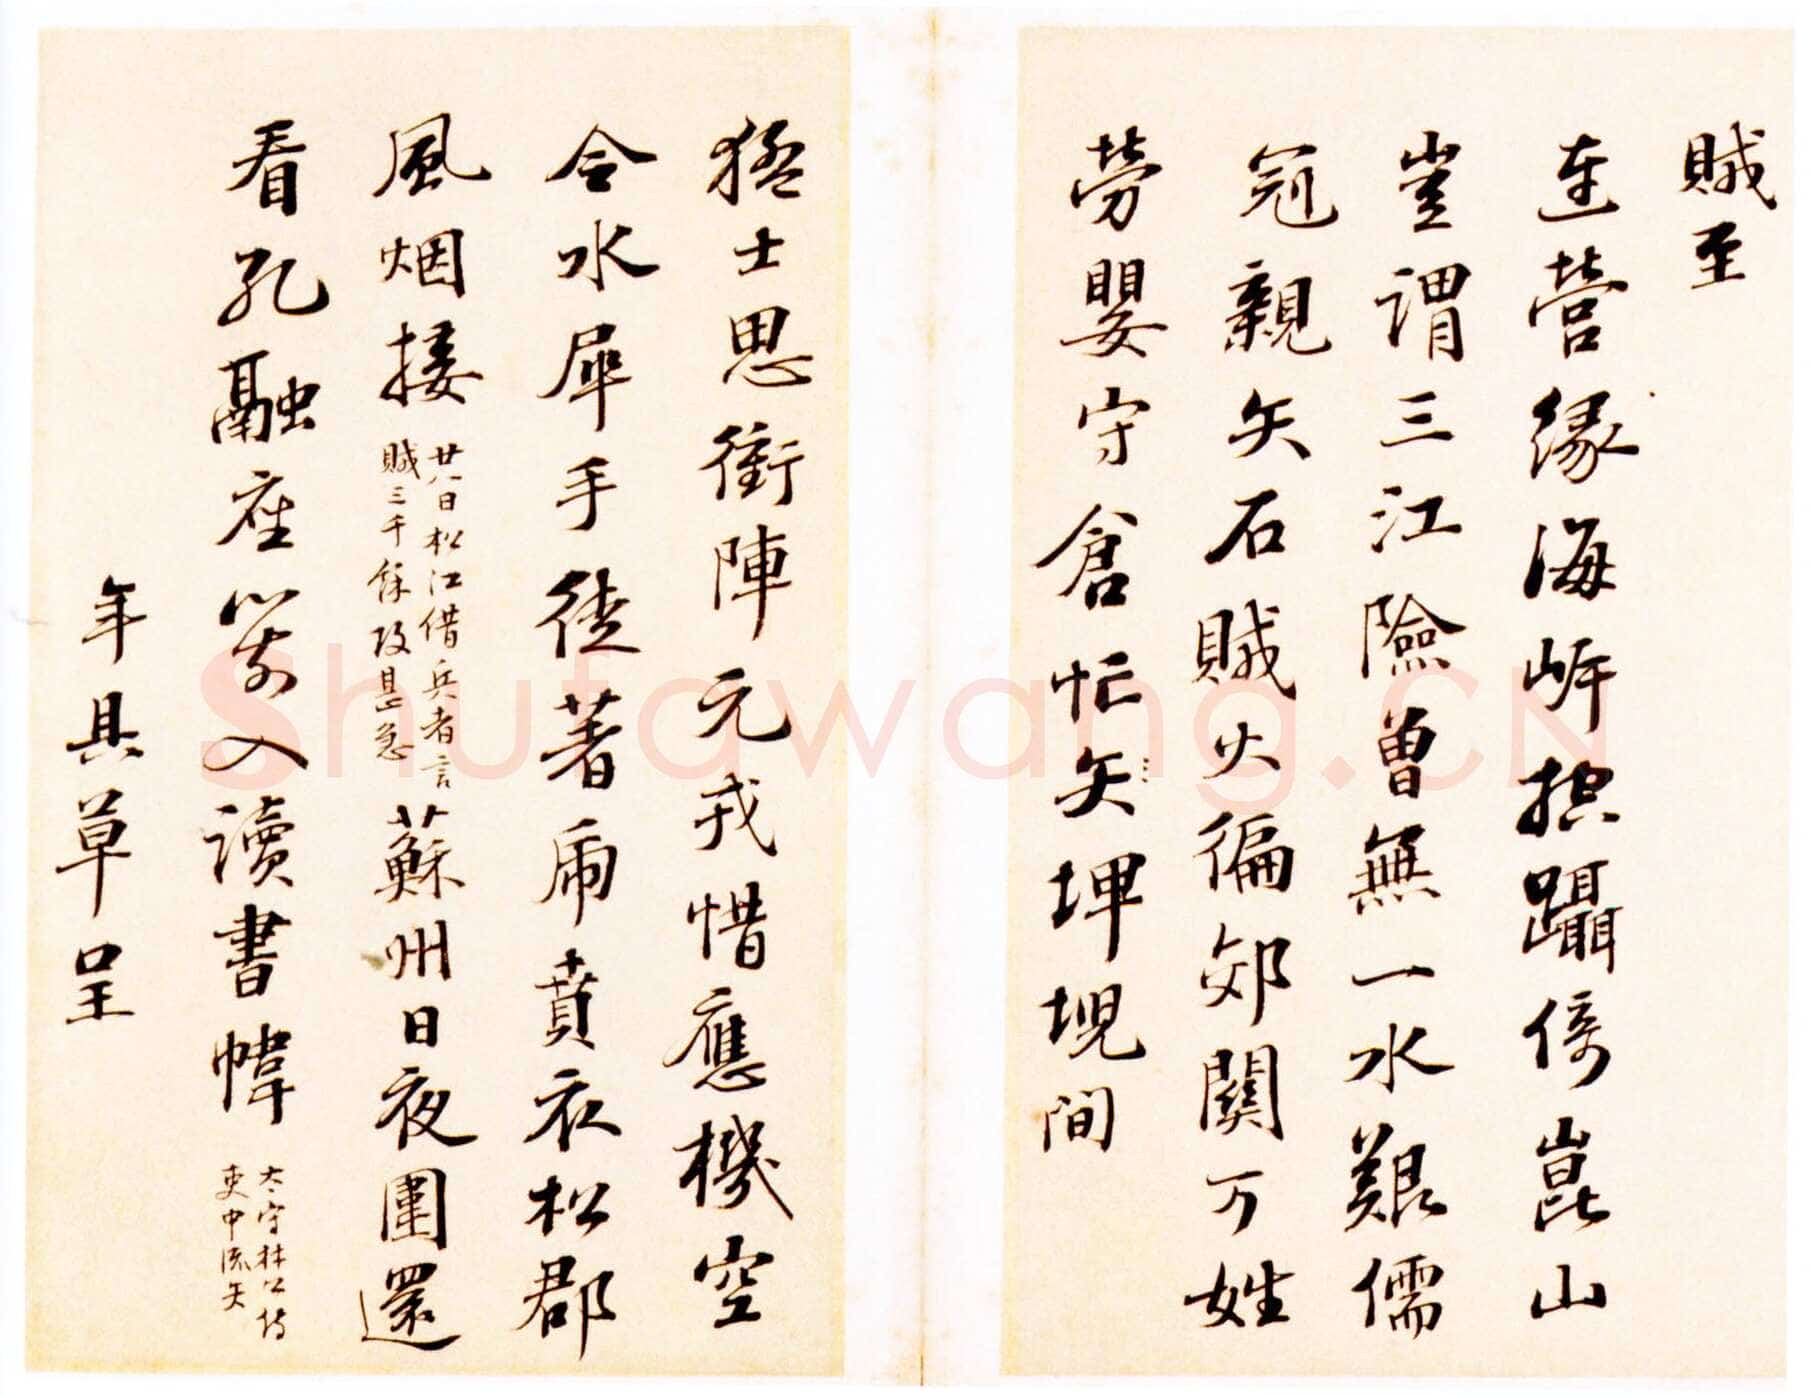 賊至
連營緣海岸躡倚崑山
豈謂三江險曾無一水艱儒
冠親矢石賊火徧郊關万姓
劳嬰守倉忙矢埤堄間
猛士思衝陣元戎惜應機空
令水犀手徒著虎賁衣松郡
風烟接
廿八日松江借兵者言
賊三千餘攻甚急
蘇州日夜圍還
看孔融座箭入讀書幃
太守林公侍
吏中流矢
年具草呈
Shufawang.CN